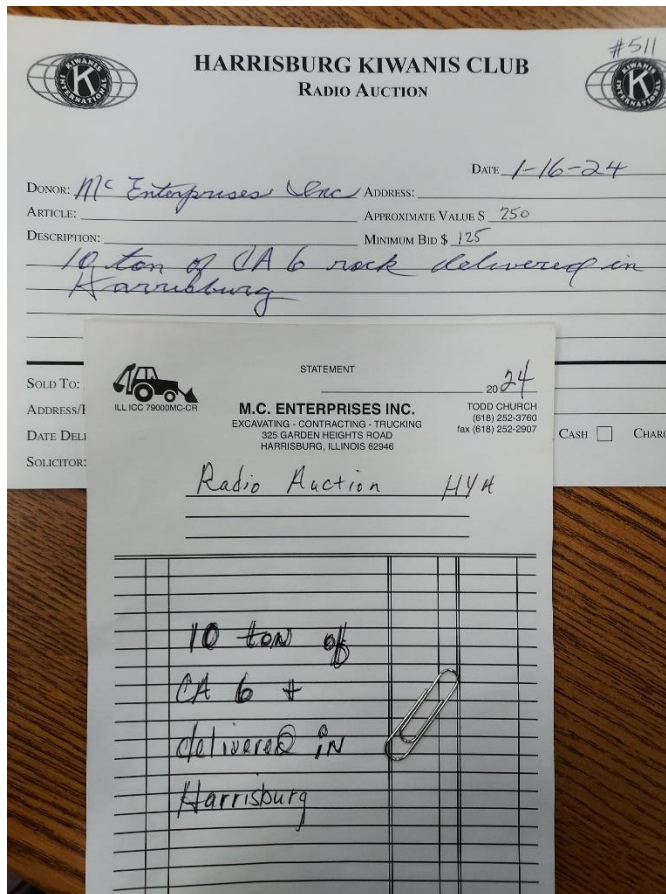 #511
HARRISBURG KIWANIS CLUB
RADIO AUCTION
KIWANIS
K
INTERNATIONAL
KIWANIS
K
INTERNATIONAL
DATE 1-16-24
DONOR: Mc Enterprises Inc ADDRESS:
ARTICLE: APPROXIMATE VALUE $ 250
DESCRIPTION: MINIMUM BID $ 125
10 ton of CA 6 rock delivered in
Harrisburg
SOLD TO:
ADDRESS/
DATE DELI
CASH CHAR
SOLICITOR:
STATEMENT
20 24
ILL ICC 79000MC-CR
M.C. ENTERPRISES INC.
EXCAVATING - CONTRACTING - TRUCKING
325 GARDEN HEIGHTS ROAD
HARRISBURG, ILLINOIS 62946
TODD CHURCH
(618) 252-3760
fax (618) 252-2907
Radio Auction HYH
10 ton of
CA 6 +
delivered in
Harrisburg